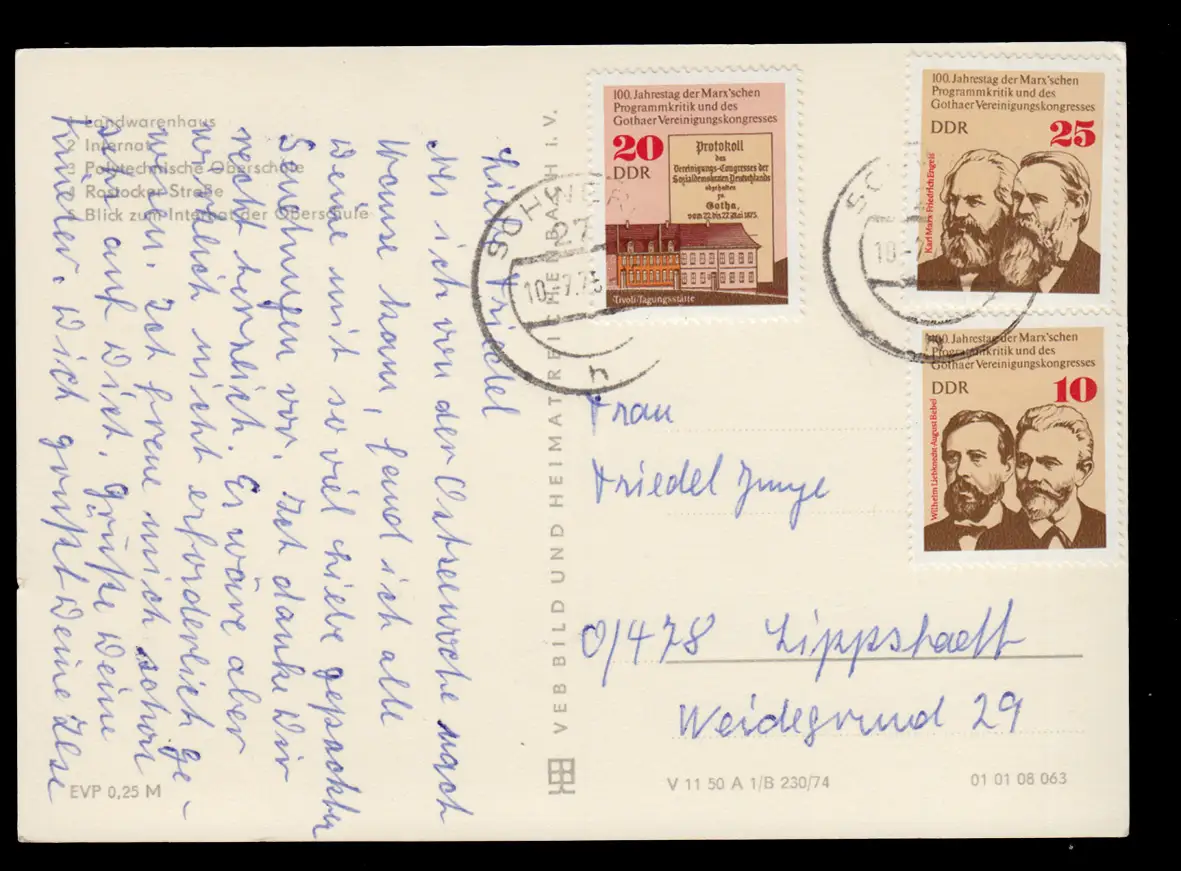 1 Landwarenhaus
2 Internat
3 Polytechnische Oberschule
4 Rostocker Straße
5 Blick zum Internat der Oberschule
Liebe Friedel
Als ich von der Ostseewoche nach
Hause kam, fand ich alle
Deine mit so viel Liebe gepackten
Sendungen vor. Ich danke Dir
recht herzlich. Es wäre aber
wirklich nicht erforderlich ge-
wesen. Ich freue mich schon
sehr auf Dich. Grüße Deine
Kinder. Dich grüßt Deine Ilse
EVP 0,25 M
VEB BILD UND HEIMAT REICHENBACH I. V.
100. Jahrestag der Marx'schen
Programmkritik und des
Gothaer Vereinigungskongresses
20
DDR
Protokoll
des
Vereinigungs-Congresses der
Sozialdemokraten Deutschlands
abgehalten
zu
Gotha,
vom 22. bis 27. Mai 1875.
Tivoli-Tagungsstätte
100. Jahrestag der Marx'schen
Programmkritik und des
Gothaer Vereinigungskongresses
DDR
25
Karl Marx · Friedrich Engels
100. Jahrestag der Marx'schen
Programmkritik und des
Gothaer Vereinigungskongresses
DDR
10
Wilhelm Liebknecht · August Bebel
SCHWER
27
10.-7.75
h
10.-7
h
Frau
Friedel Junge
0/478 Lippstadt
Weidegrund 29
V 11 50 A 1/B 230/74
01 01 08 063